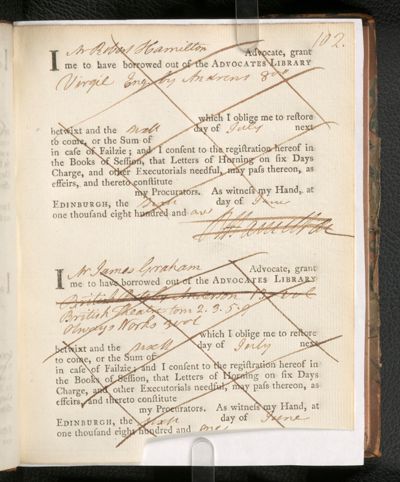 102.
I Mr Robert Hamilton Advocate, grant
me to have borrowed out of the ADVOCATES LIBRARY
Virgil Eng. by Andrews 8vo
which I oblige me to restore
betwixt and the day of July next
to come, or the Sum of
in case of Failzie; and I consent to the registration hereof in
the Books of Session, that Letters of Horning on six Days
Charge, and other Executorials needful, may pass thereon, as
effeirs, and thereto constitute
my Procurators. As witness my Hand, at
EDINBURGH, the day of June
one thousand eight hundred and one
I Mr James Graham Advocate, grant
me to have borrowed out of the ADVOCATES LIBRARY
British Theatre tom 2. 3. 5. 9
Works
which I oblige me to restore
betwixt and the day of July next
to come, or the Sum of
in case of Failzie; and I consent to the registration hereof in
the Books of Session, that Letters of Horning on six Days
Charge, and other Executorials needful, may pass thereon, as
effeirs, and thereto constitute
my Procurators. As witness my Hand, at
EDINBURGH, the day of June
one thousand eight hundred and one